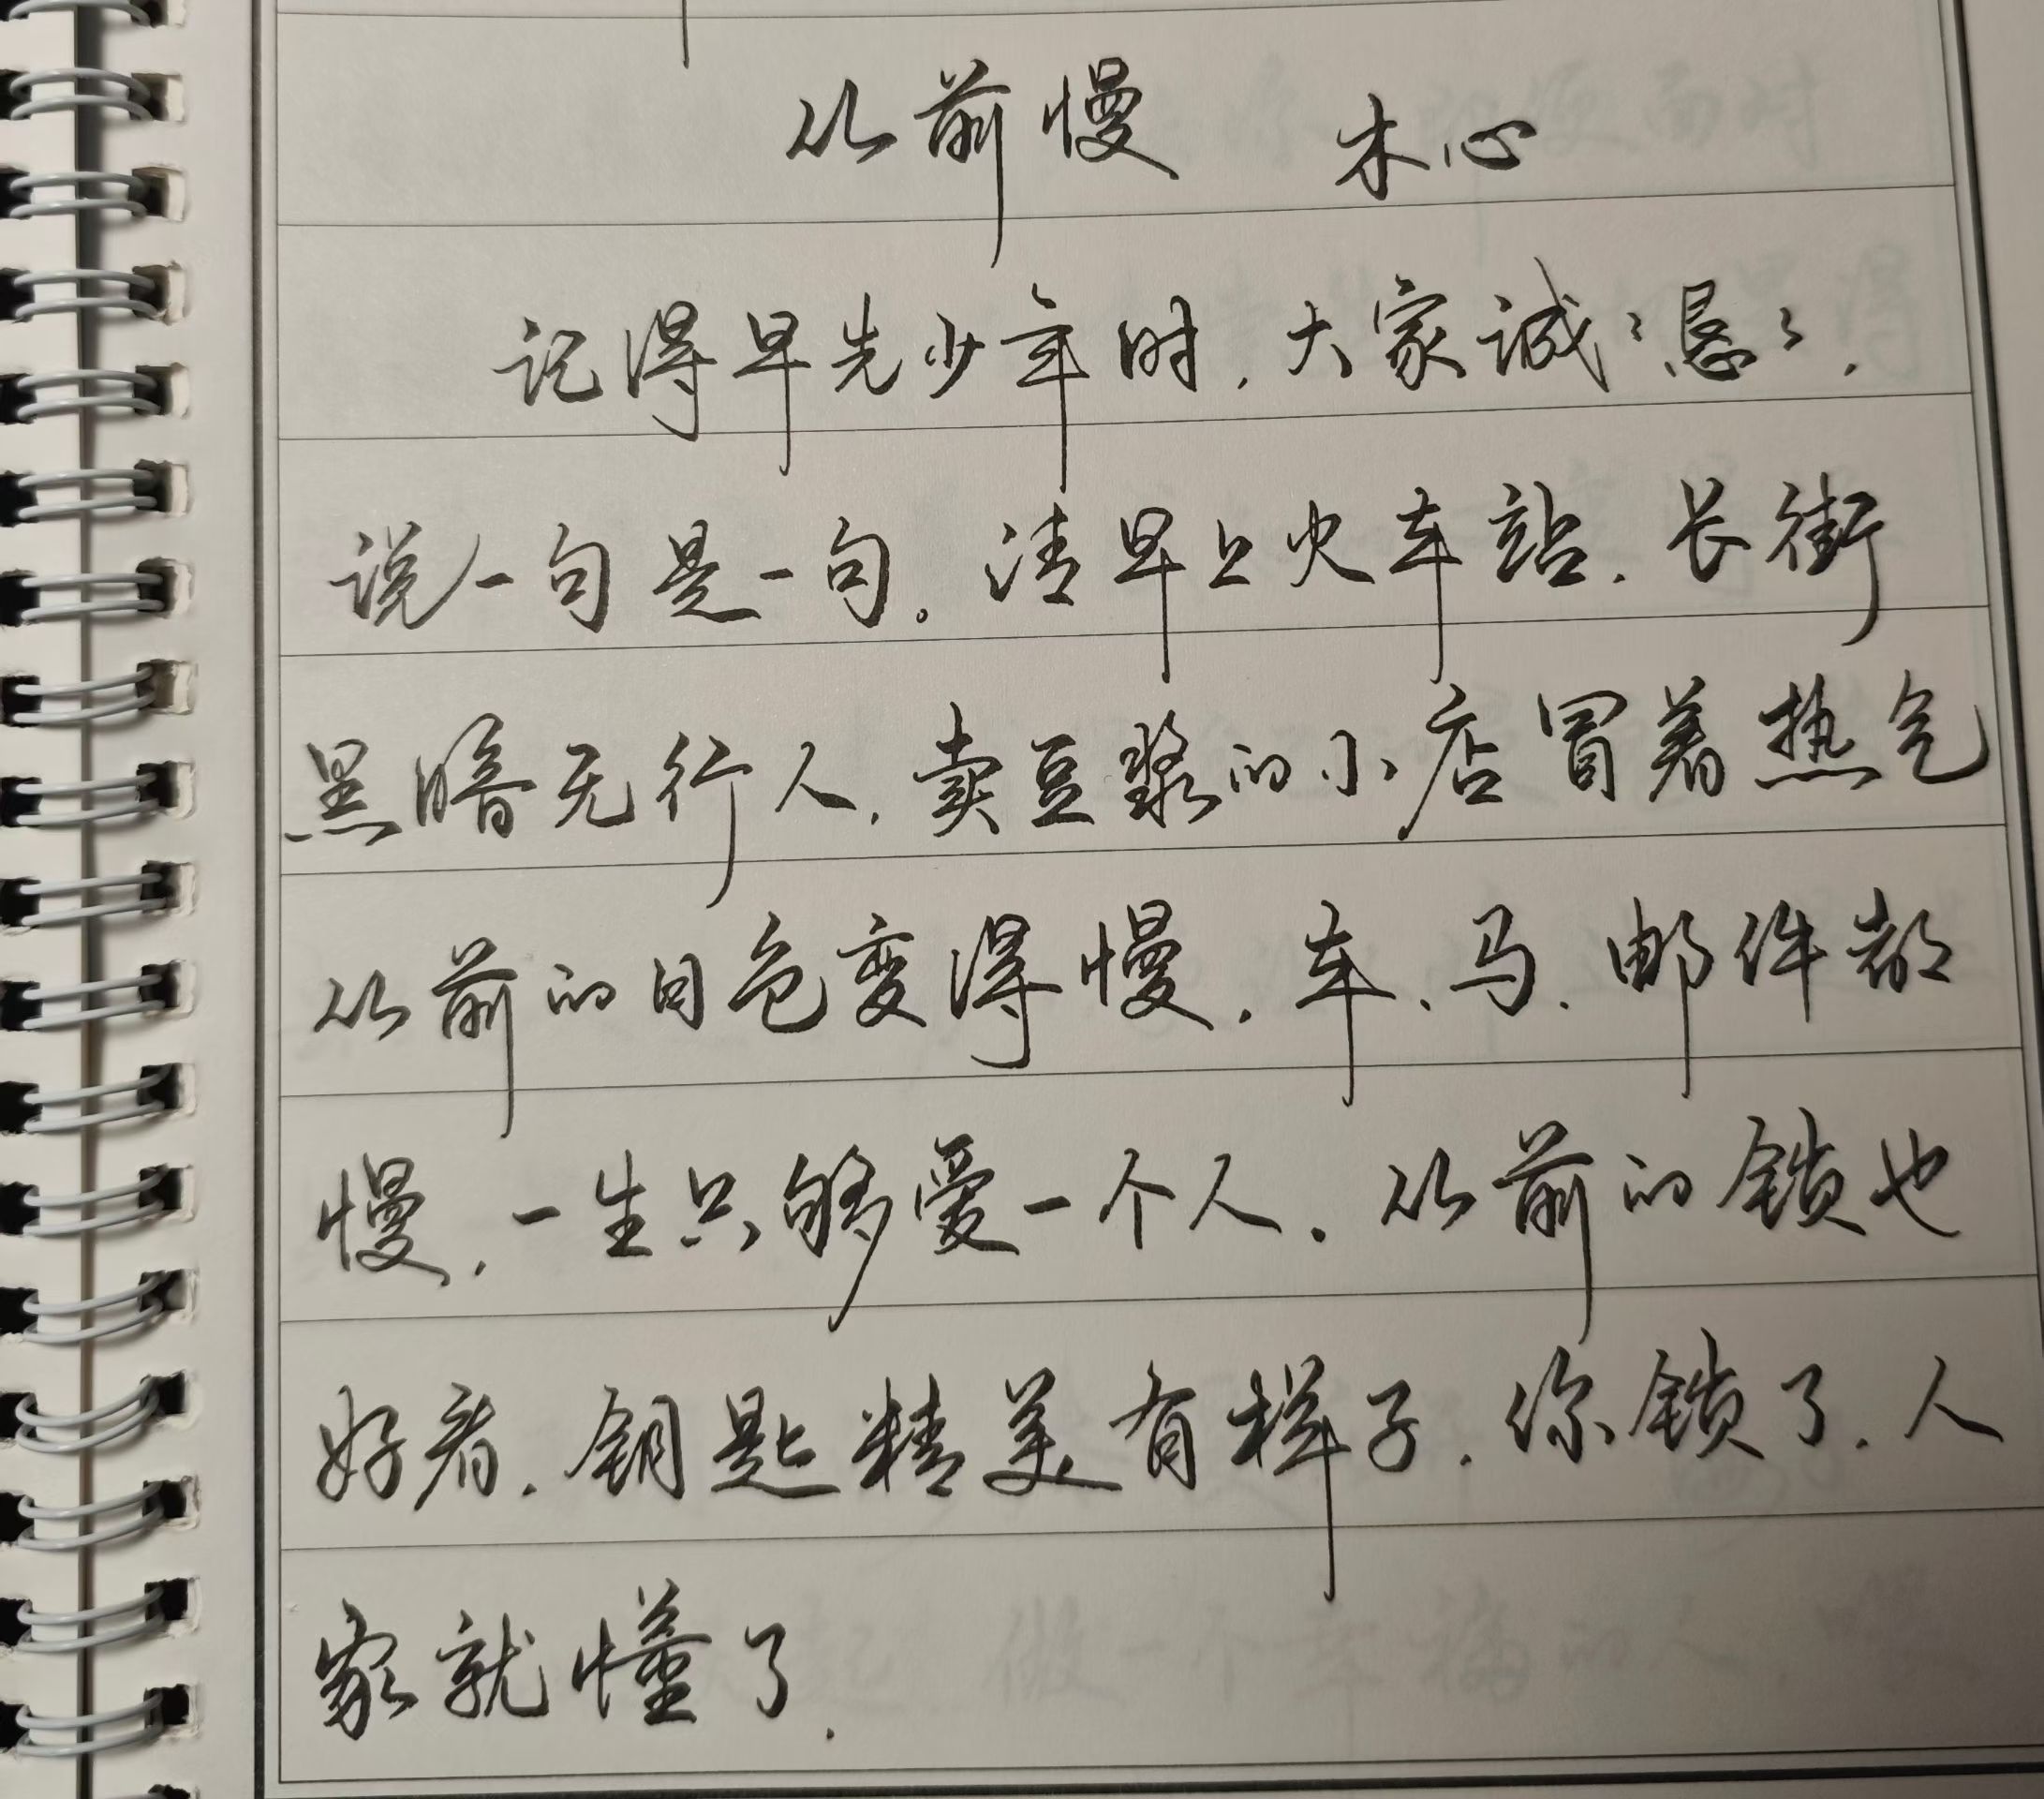 从前慢 木心
记得早先少年时,大家诚々恳々,
说一句是一句。清早上火车站,长街
黑暗无行人,卖豆浆的小店冒着热气
从前的日色变得慢,车、马、邮件都
慢,一生只够爱一个人.从前的锁也
好看,钥匙精美有样子,你锁了,人
家就懂了.